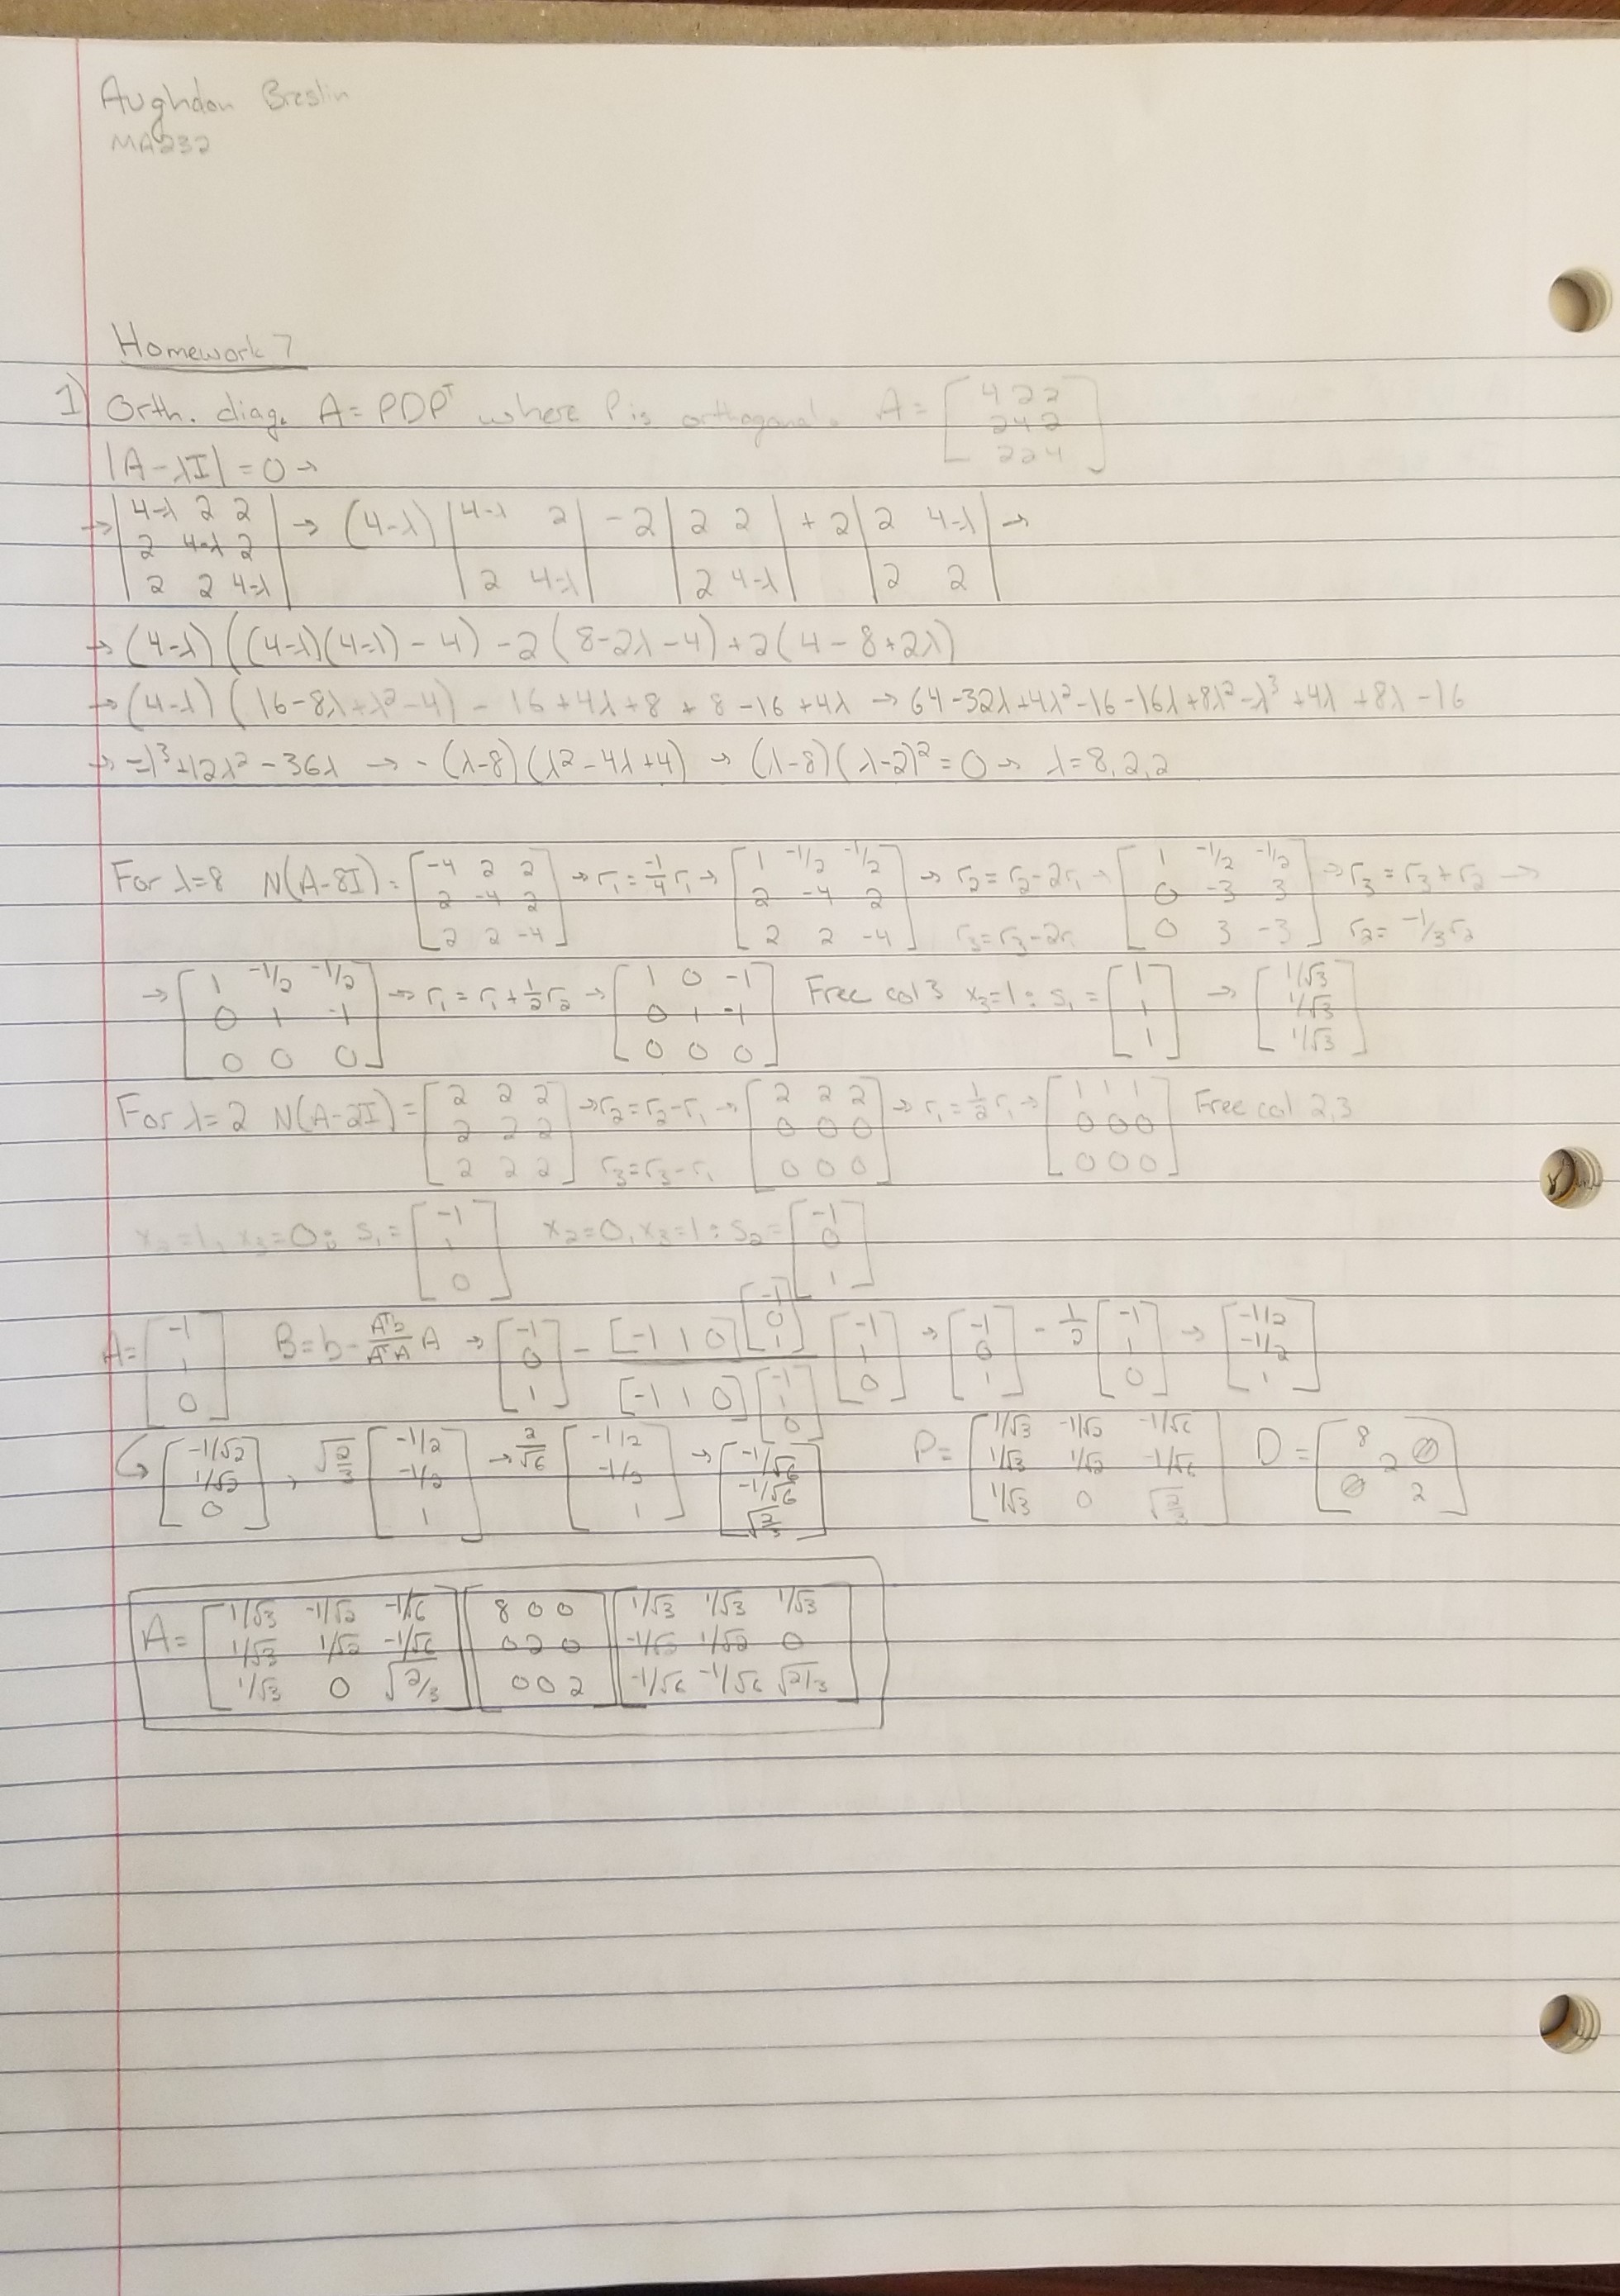 Aughdon Breslin
MA232
Homework 7
1) Orth. diag. A = PDPᵀ where P is orthogonal. A = [4 2 2; 2 4 2; 2 2 4]
|A-λI| = 0 →
→ |4-λ 2 2; 2 4-λ 2; 2 2 4-λ| → (4-λ) |4-λ 2; 2 4-λ| - 2 |2 2; 2 4-λ| + 2 |2 4-λ; 2 2| →
→ (4-λ) ((4-λ)(4-λ) - 4) - 2 (8-2λ-4) + 2 (4-8+2λ)
→ (4-λ) (16-8λ+λ²-4) - 16+4λ+8 + 8-16+4λ → 64-32λ+4λ²-16-16λ+8λ²-λ³+4λ+8λ-16
→ -λ³+12λ²-36λ → -(λ-8)(λ²-4λ+4) → (λ-8)(λ-2)² = 0 → λ=8,2,2
For λ=8 N(A-8I) = [-4 2 2; 2 -4 2; 2 2 -4] → r₁ = -1/4 r₁ → [1 -1/2 -1/2; 2 -4 2; 2 2 -4] → r₂=r₂-2r₁ r₃=r₃-2r₁ → [1 -1/2 -1/2; 0 -3 3; 0 3 -3] → r₃=r₃+r₂ r₂=-1/3r₂ →
→ [1 -1/2 -1/2; 0 1 -1; 0 0 0] → r₁=r₁+1/2r₂ → [1 0 -1; 0 1 -1; 0 0 0] Free col 3 x₃=1: s₁ = [1; 1; 1] → [1/√3; 1/√3; 1/√3]
For λ=2 N(A-2I) = [2 2 2; 2 2 2; 2 2 2] → r₂=r₂-r₁ r₃=r₃-r₁ → [2 2 2; 0 0 0; 0 0 0] → r₁=1/2r₁ → [1 1 1; 0 0 0; 0 0 0] Free col 2,3
x₂=1, x₃=0: s₁ = [-1; 1; 0] x₂=0, x₃=1: s₂ = [-1; 0; 1]
A = [-1; 1; 0] B = b - Aᵀb/AᵀA A → [-1; 0; 1] - [-1 1 0][-1; 0; 1] / [-1 1 0][-1; 1; 0] [-1; 1; 0] → [-1; 0; 1] - 1/2 [-1; 1; 0] → [-1/2; -1/2; 1]
↳ [-1/√2; 1/√2; 0], √2/3 [-1/2; -1/2; 1] → 2/√6 [-1/2; -1/2; 1] → [-1/√6; -1/√6; √2/3] P = [1/√3 -1/√2 -1/√6; 1/√3 1/√2 -1/√6; 1/√3 0 √2/3] D = [8 ∅; 2; ∅ 2]
A = [1/√3 -1/√2 -1/√6; 1/√3 1/√2 -1/√6; 1/√3 0 √2/3] [8 0 0; 0 2 0; 0 0 2] [1/√3 1/√3 1/√3; -1/√2 1/√2 0; -1/√6 -1/√6 √2/3]